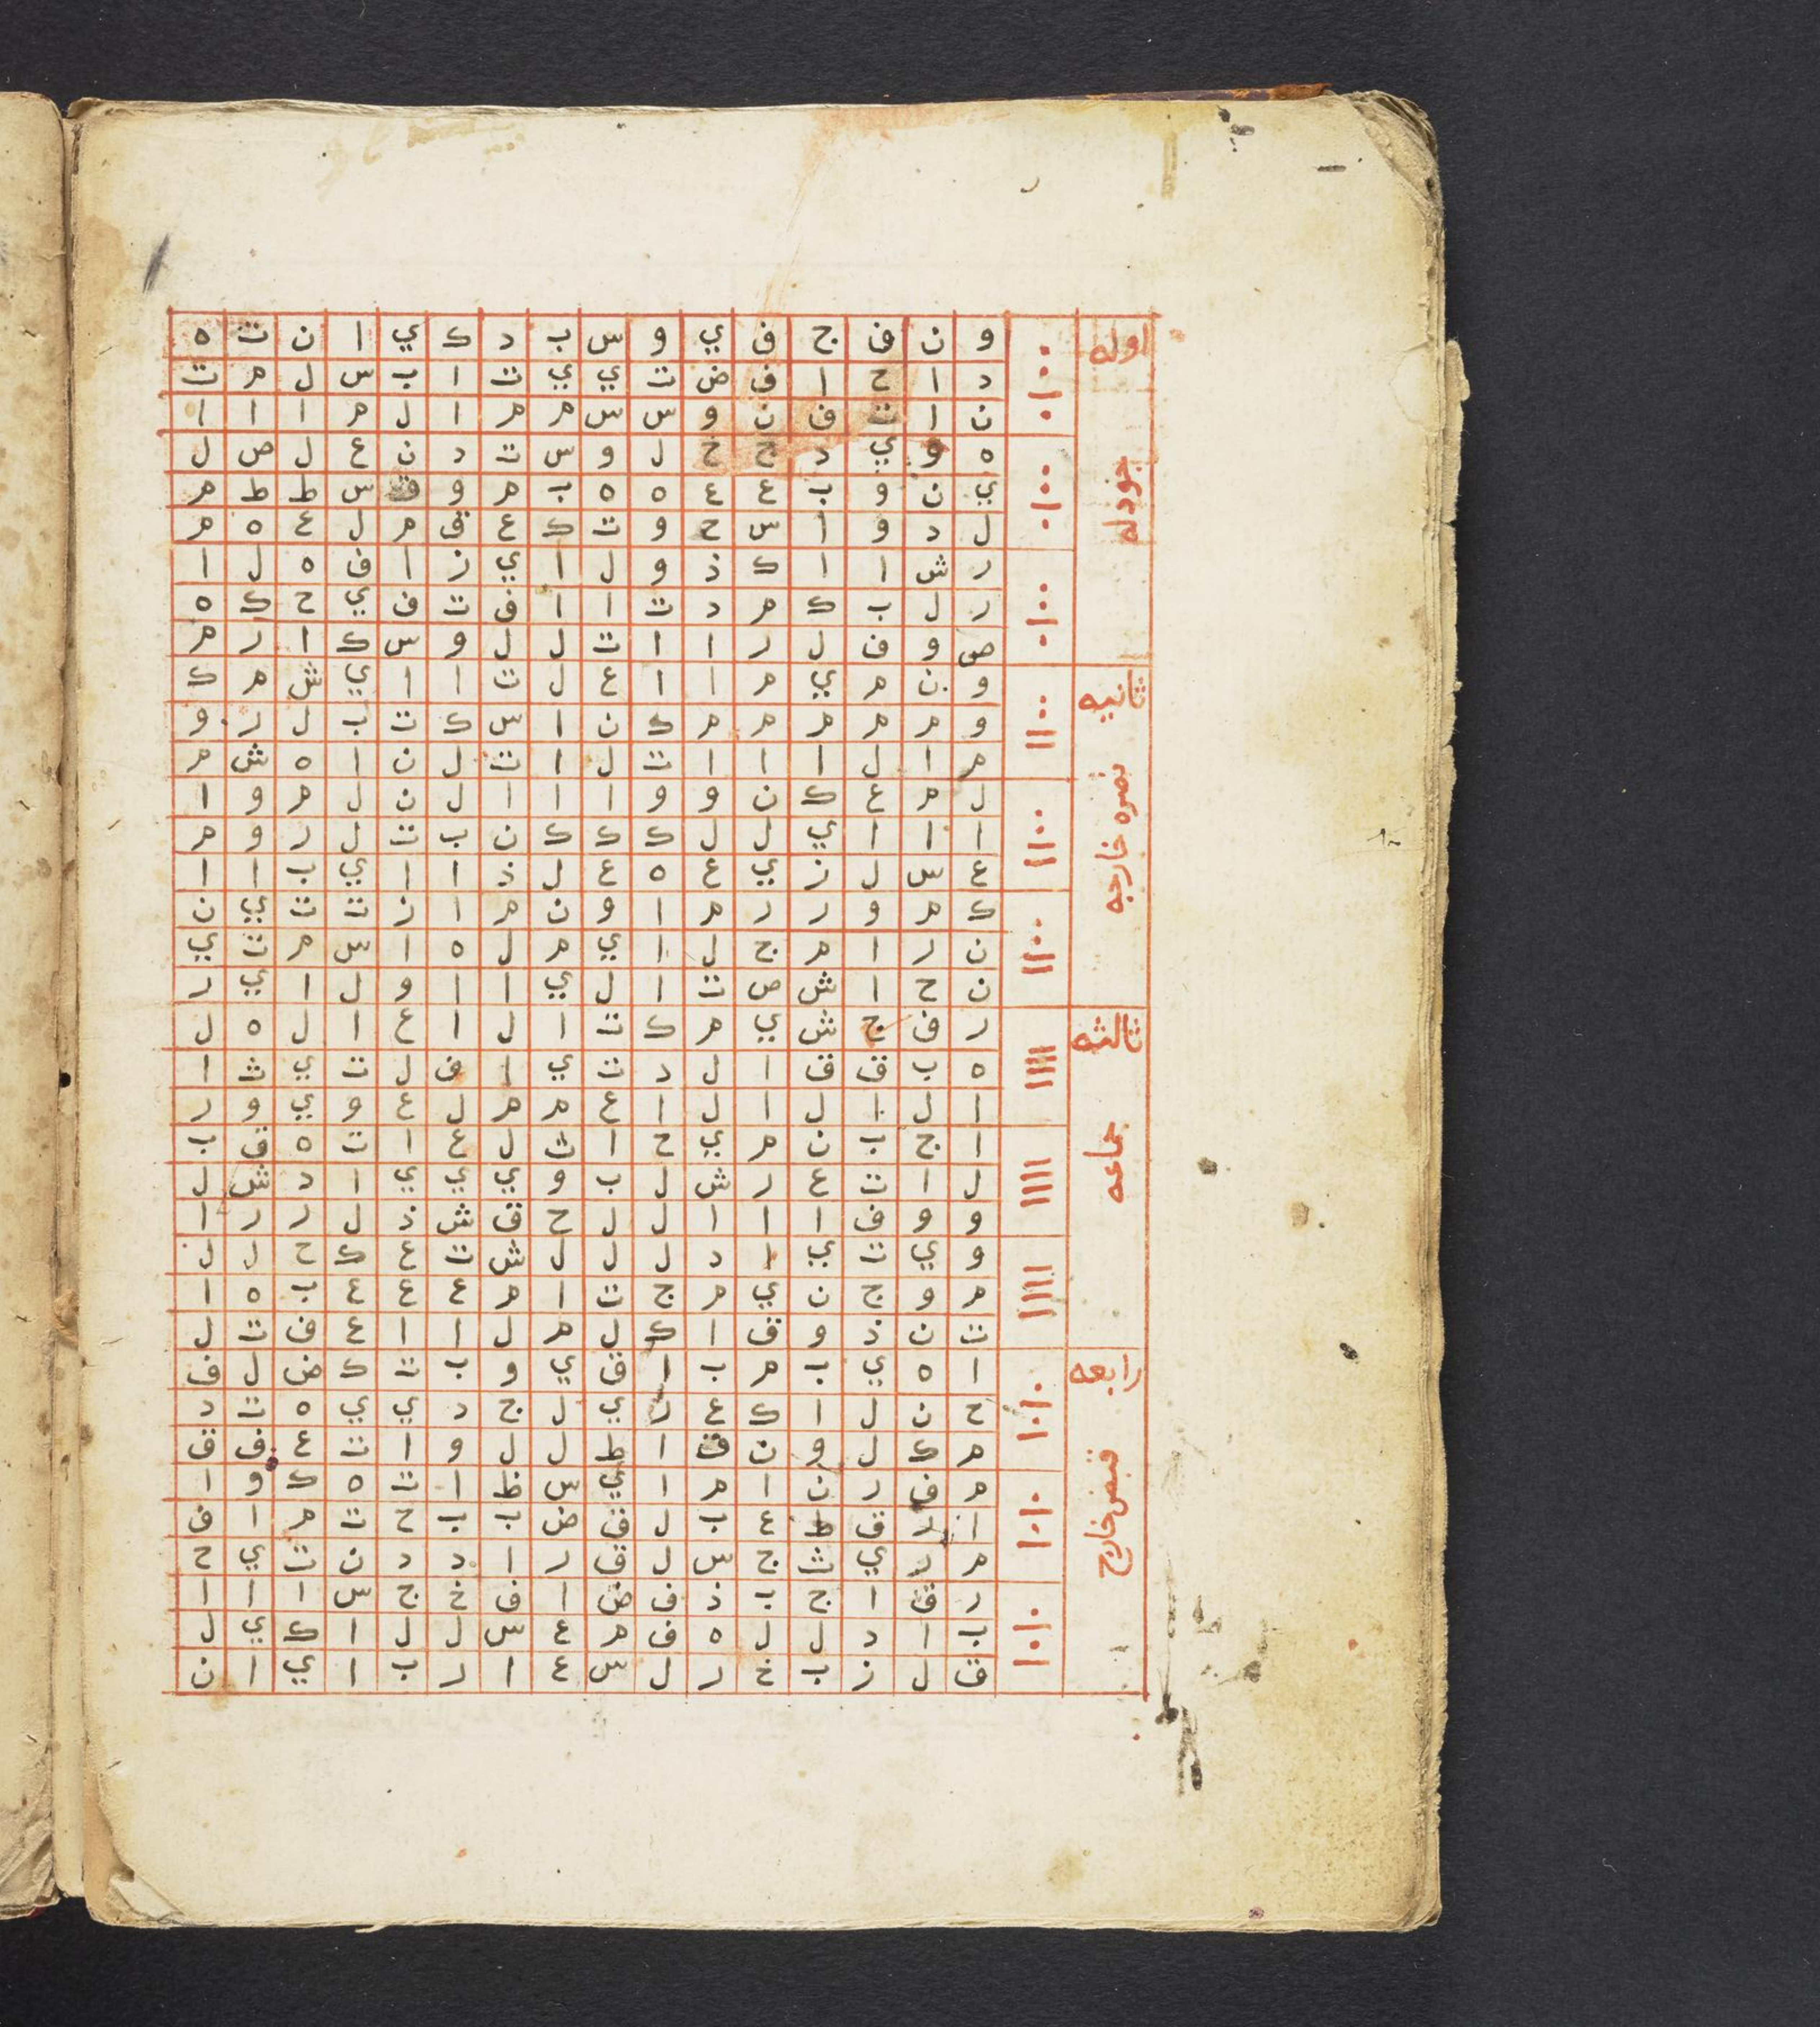 اوله
جودله
و ن ف ج ف ي و س ب د ك ي ا ن ت ه
د ا ح ا ف ض ت ي ي ت ا ب س ل م ت
ن ا ت ف ن و س س م م ا ل م ا ا ا
ه و ي د ج خ ل و س ت د ن ع ل ص ل
ي ن و ب ع ع ه ه ب م و ق س ط ط م
ل د و ا س ح و ت ك ع ق م ل ع ه م
ر ش ا ا ك ذ و ل ا ي ز ا ف ه ل ا
ر ل ب ك م د ت ا ا ف ت ف ي ح ك ه
ص و ف ل ر ا ا ت ل ل و س ك ا ر م
ثانيه
نصره خارجه
و ن م ي م ا ا ع ل ت ا ا ي ش م ك
و م م م م م ك ن ا س ك ت ب ل ر و
م ا ل ا ا ا ت ل ا ت ل ن ا ه ش م
ل م ع ك ن و و ا ا ا ل ن ل م و ا
ا ا ا ي ل ل ك ك ك ن ب ت ل ر و م
ع س ل ز ي ع ه ع ل ذ ا ا ي ب ا ا
ك م و ر ر م ا و ن م ا ز ت ت ي ن
ن ر ا م ج ل ا ي م ل ه ا س م ت ي
ن ح ا ش ص ت ا ل ي ا ا و ل ا ي ر
ثالثه
جماعه
ر ف ج ش ي م ك ت ا ل ا ع ا ل ه ل
ه ب ق ق ا ل د ت ي ا ف ل ت ي ث ا
ا ل ا ل ا ل ا ع م م ل ع و ي و ر
ا ج ب ن م ي ح ا ث ل ع ا ت ه ق ب
ل ا ت ع ر ش ل ب و ي ي ي ا د ش ل
و و ف ا ا ا ل ل ح ق ش ذ ل ر ر ا
و ي ت ي ا د ل ل ل ش ت ع ك ح ل ل
م و ج ن ي م ج ت ا م ع ع ع ب ه ا
ت ن ذ و ق ا ك ل م ل ا ا ع ف ت ل
رابعه
قبض خارج
ا ه ي ب م ب ا ق ي و ب ت ك ض ل ف
ح ن ل ا ك ع ن ي ل ج د ي ي ه ت د
م ك ل و ن ق ا ط ل ل و ا ت ع ف ق
م ف ر ن ا م ا ي س ظ ا ت ه ك و ا
ا ر ق ط ع ب ل ق ض ب ب ح ت م ا ف
م ر ي ث ج س ل ق ر ا د د ن ت ي ح
ر ق ا ج ب ذ ف ض ا ف خ ج س ا ا ا
ب ا د ل ل ه ف م ع س ل ل ا ك ي ل
ق ل ز ب خ ر ل س ع ا ر ب ا ي ا ن